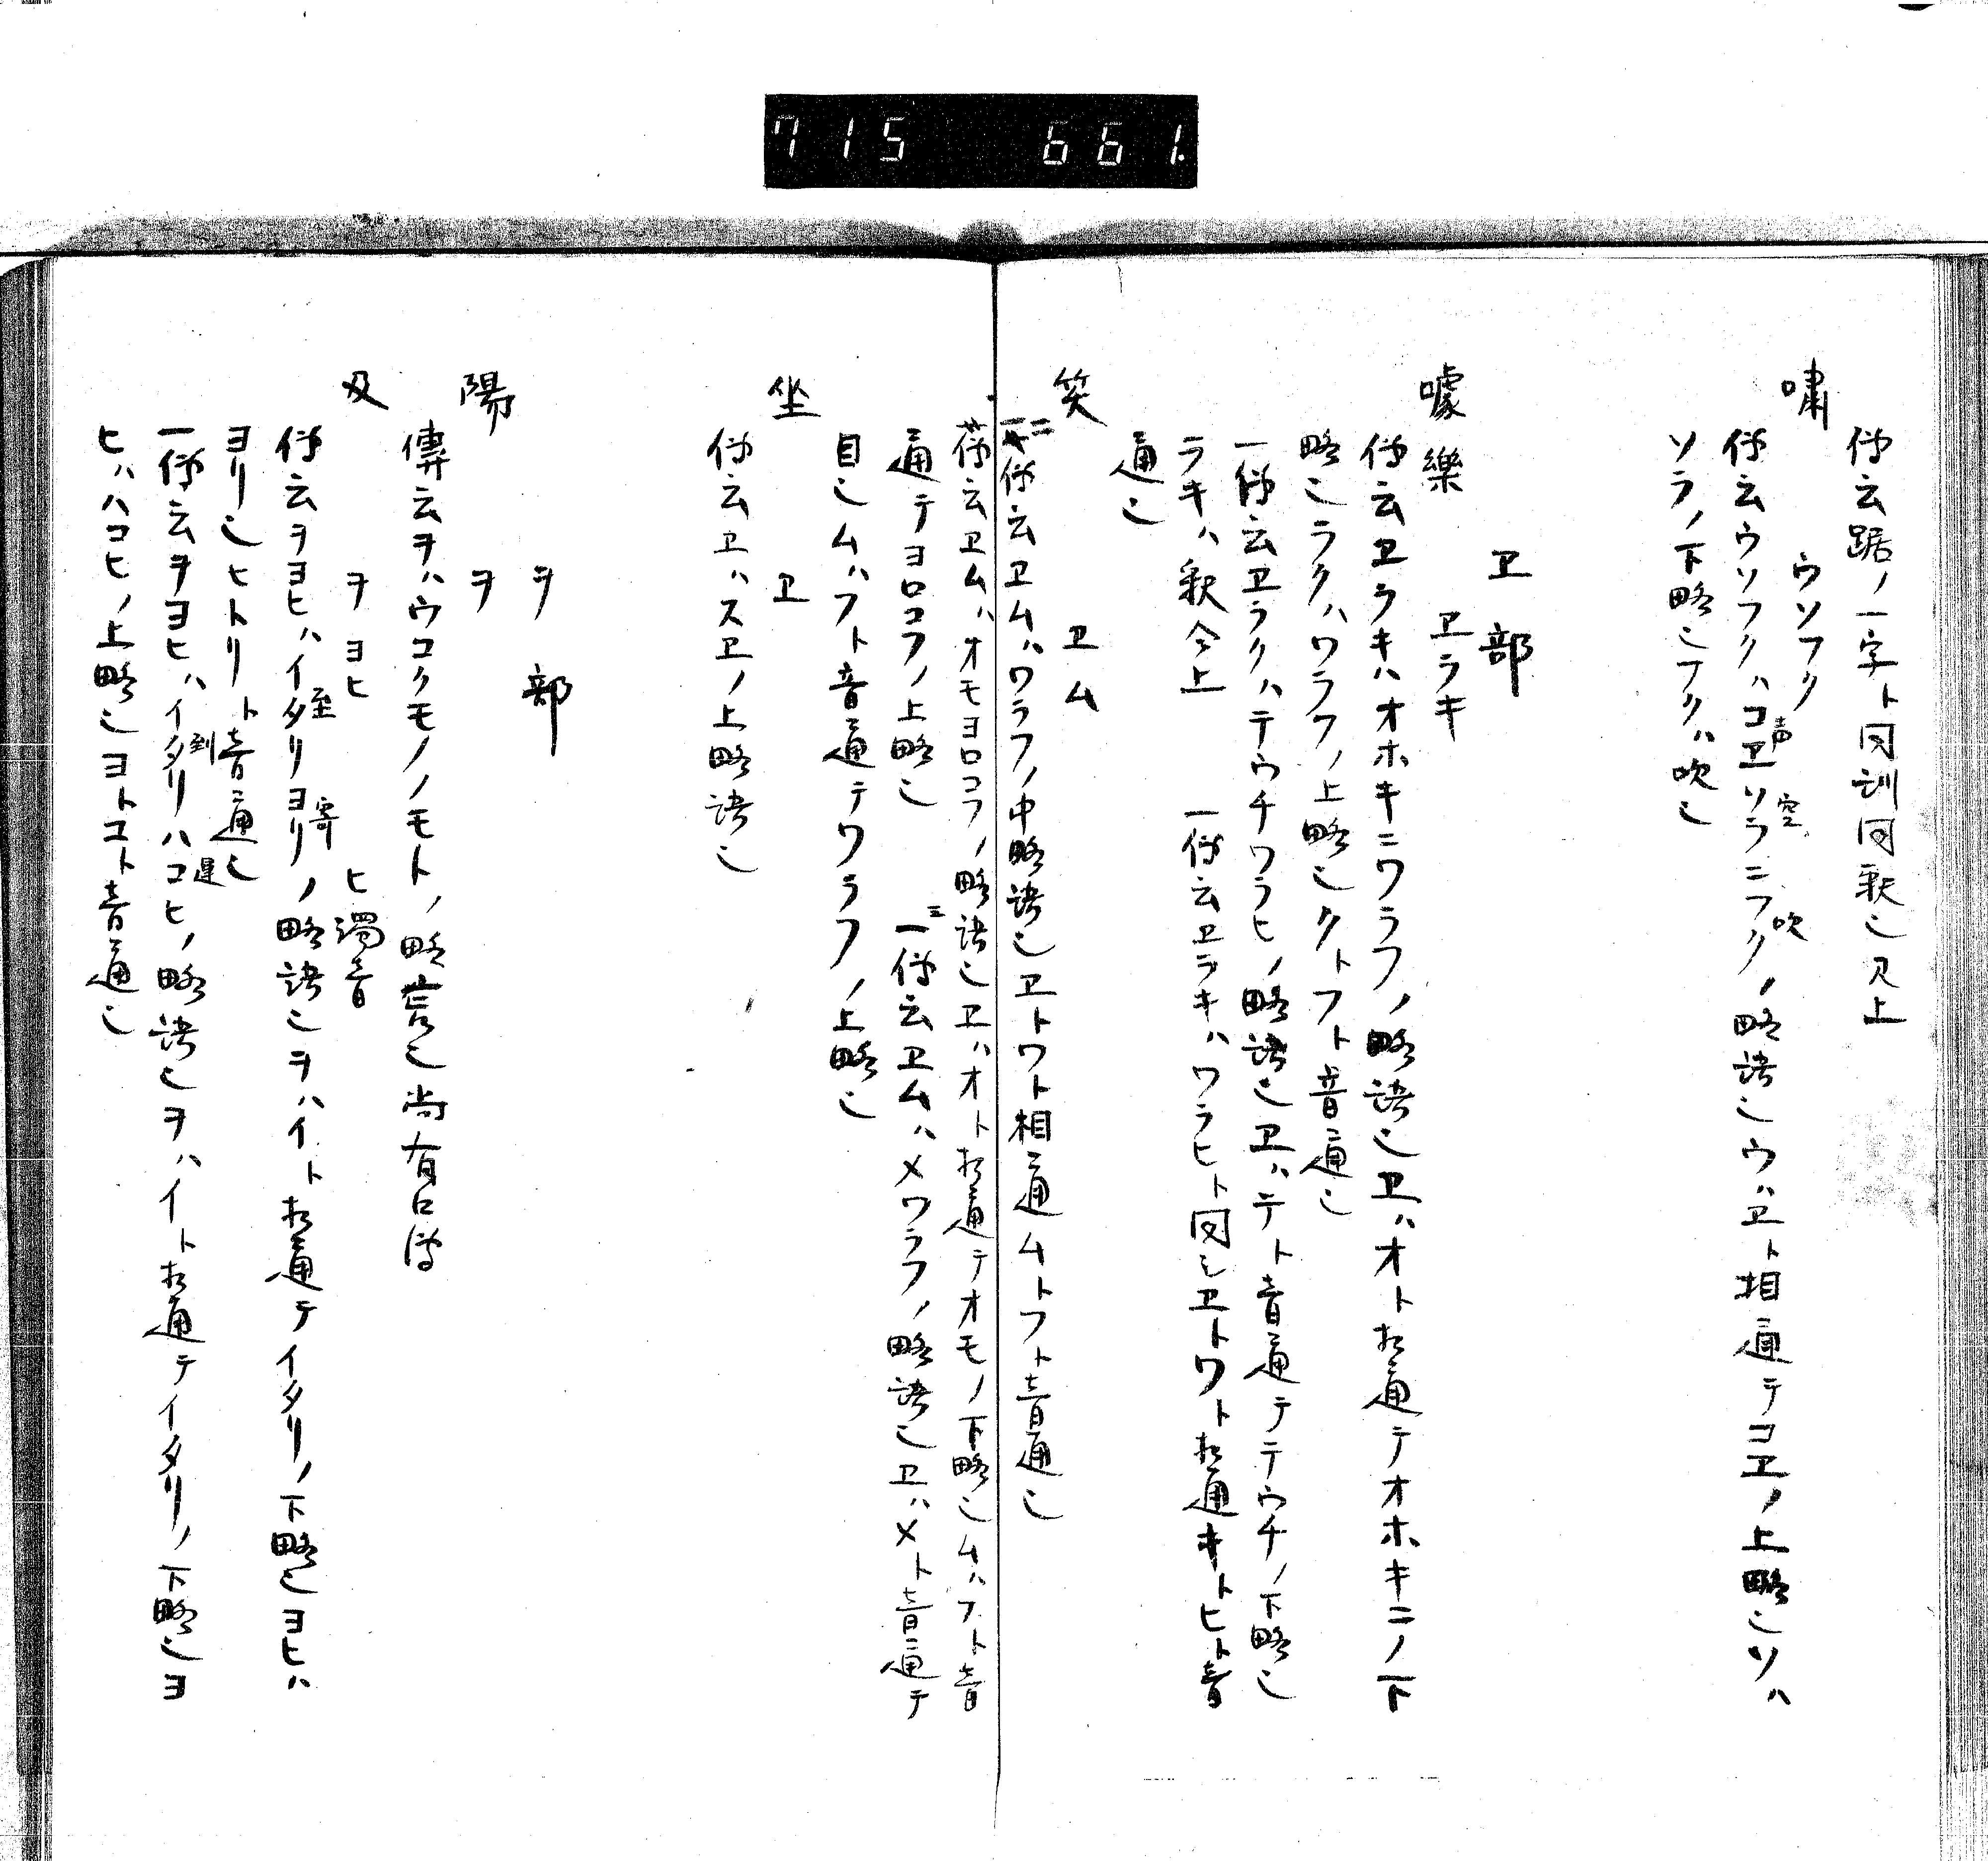 715 661.
傳云踞ノ一字ト同訓同釈也又上
嘯 ウソフク
傳云ウソフクハコヱ声ソラ空ニフク吹ノ略語也ウハヱト相通テコヱノ上略也ソハ
ソラノ下略也フクハ吹也
ヱ部
噱樂 ヱラキ
傳云ヱラキハオホキニワラフノ略語也ヱハオト相通テオホキニノ下
略也ラクハワラフノ上略也クトフト音通也
一傳云ヱラクハテウチワラヒノ略語也ヱハテト音通テテウチノ下略也
ラキハ釈令上 一傳云ヱラキハワラヒト同シヱトワト相通キトヒト音
通也
笑 ヱム
二傳云ヱムハワラフノ中略語也ヱトワト相通ムトフト音通也
傳云ヱムハオモヨロコフノ略語也ヱハオト相通テオモノ下略也ムハフト音
通テヨロコフノ上略也 三一傳云ヱムハメワラフノ略語也ヱハメト音通テ
目也ムハフト音通テワラフノ上略也
坐 ヱ
傳云ヱハスヱノ上略語也
ヲ部
陽 ヲ
傳云ヲハウコクモノノモトノ略言也尚有口傳
及 ヲヨヒ ヒ濁音
傳云ヲヨヒハイタリ至ヨリ寄ノ略語也ヲハイト相通テイタリノ下略也ヨヒハ
ヨリ也ヒトリト音通也
一傳云ヲヨヒハイタリ到ハコヒ運ノ略語也ヲハイト相通テイタリノ下略也ヨ
ヒハハコヒノ上略也ヨトコト音通也